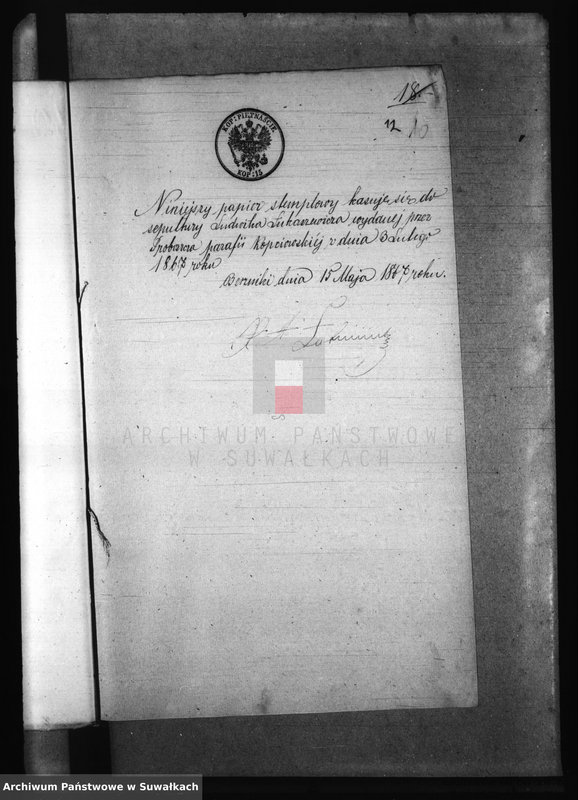 18.
12 10
KOP: PIĘTNAŚCIE
KOP: 15
Niniejszy papier stemplowy kasuje się do
sepultury Ludwika Łukaszewicza wydanej przez
Proboszcza parafii Kopciowskiéj z dnia 3 Lutego
1867 roku
Berzniki dnia 15 Maja 1867 roku.
ARCHIWUM PAŃSTWOWE
W SUWAŁKACH
Archiwum Państwowe w Suwałkach